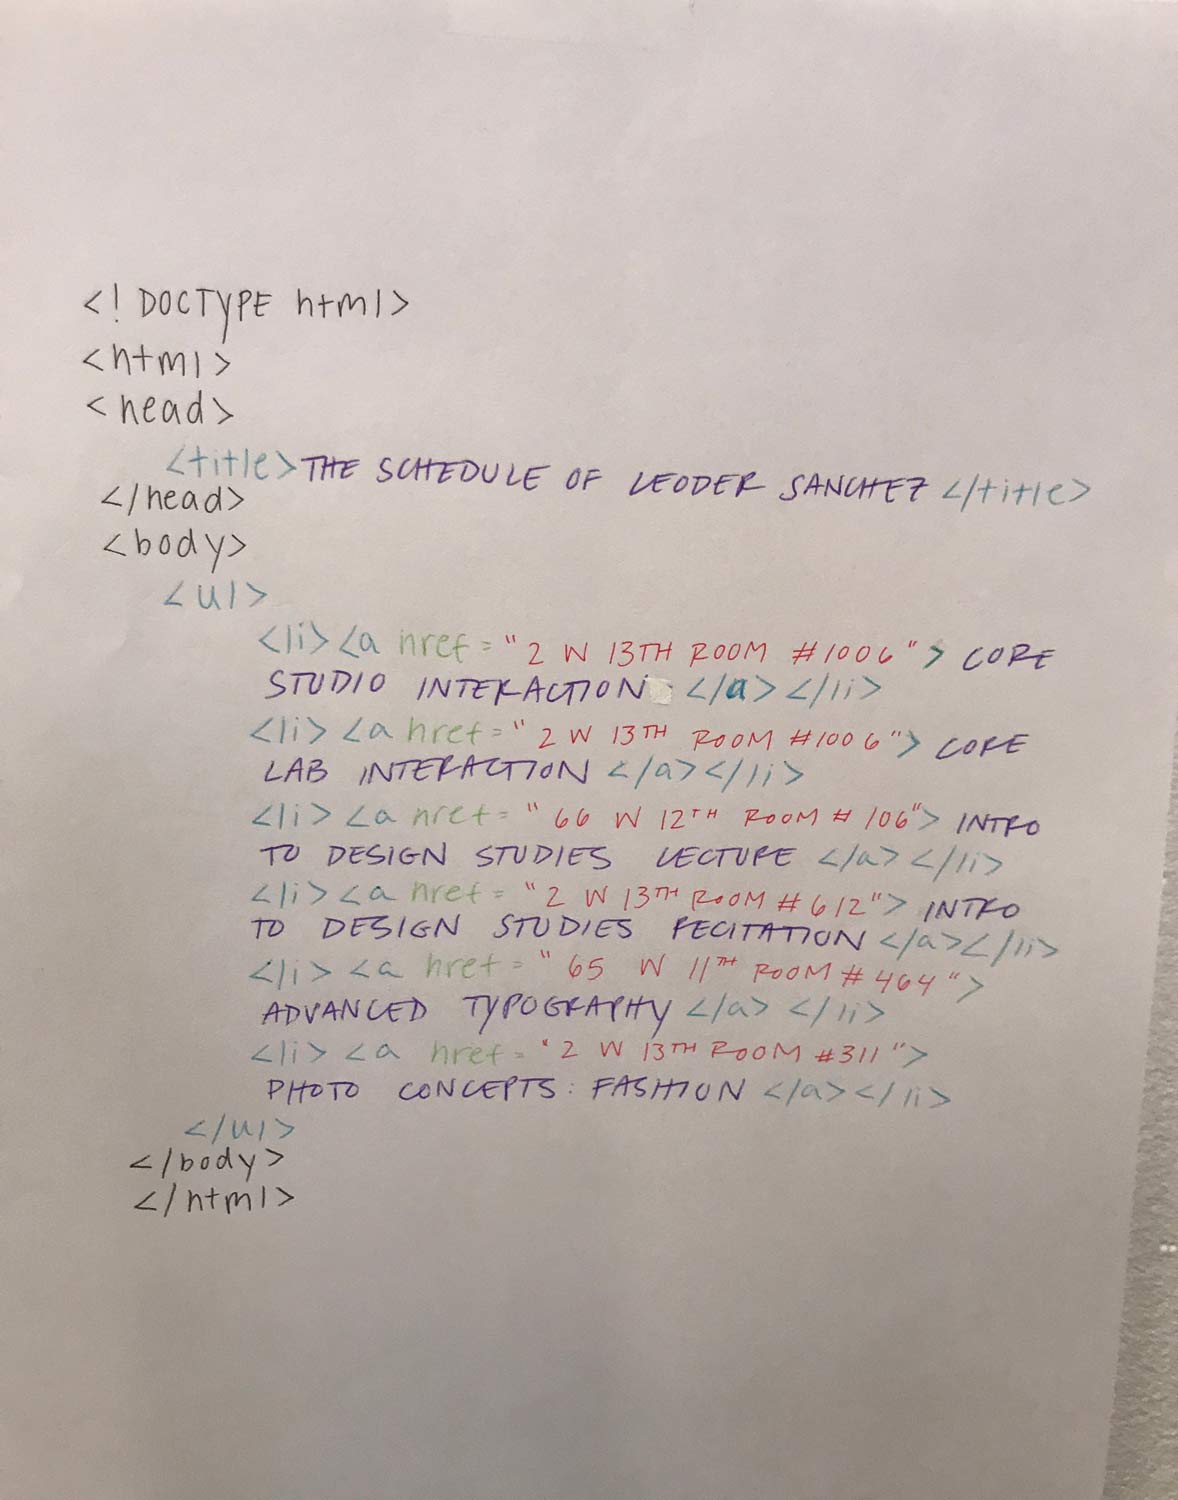 <! DOCTYPE html>
<html>
<head>
<title>THE SCHEDULE OF LEODER SANCHEZ </title>
</head>
<body>
<ul>
<li><a href="2 W 13TH ROOM #1006"> CORE
STUDIO INTERACTION </a></li>
<li><a href="2 W 13TH ROOM #1006"> CORE
LAB INTERACTION </a></li>
<li><a href="66 W 12TH ROOM #106"> INTRO
TO DESIGN STUDIES LECTURE </a></li>
<li><a href="2 W 13TH ROOM #612"> INTRO
TO DESIGN STUDIES RECITATION </a></li>
<li><a href="65 W 11TH ROOM #464">
ADVANCED TYPOGRAPHY </a></li>
<li><a href="2 W 13TH ROOM #311">
PHOTO CONCEPTS: FASHION </a></li>
</ul>
</body>
</html>